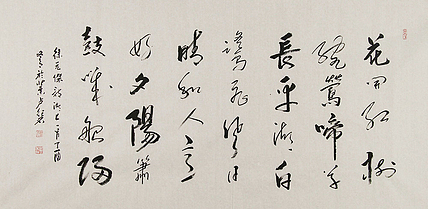 花開紅樹
亂鶯啼草
長平湖白
鷺飛風日
晴和人意
好夕陽簫
鼓幾船歸
徐元傑詩湖上一首丁酉
於北京